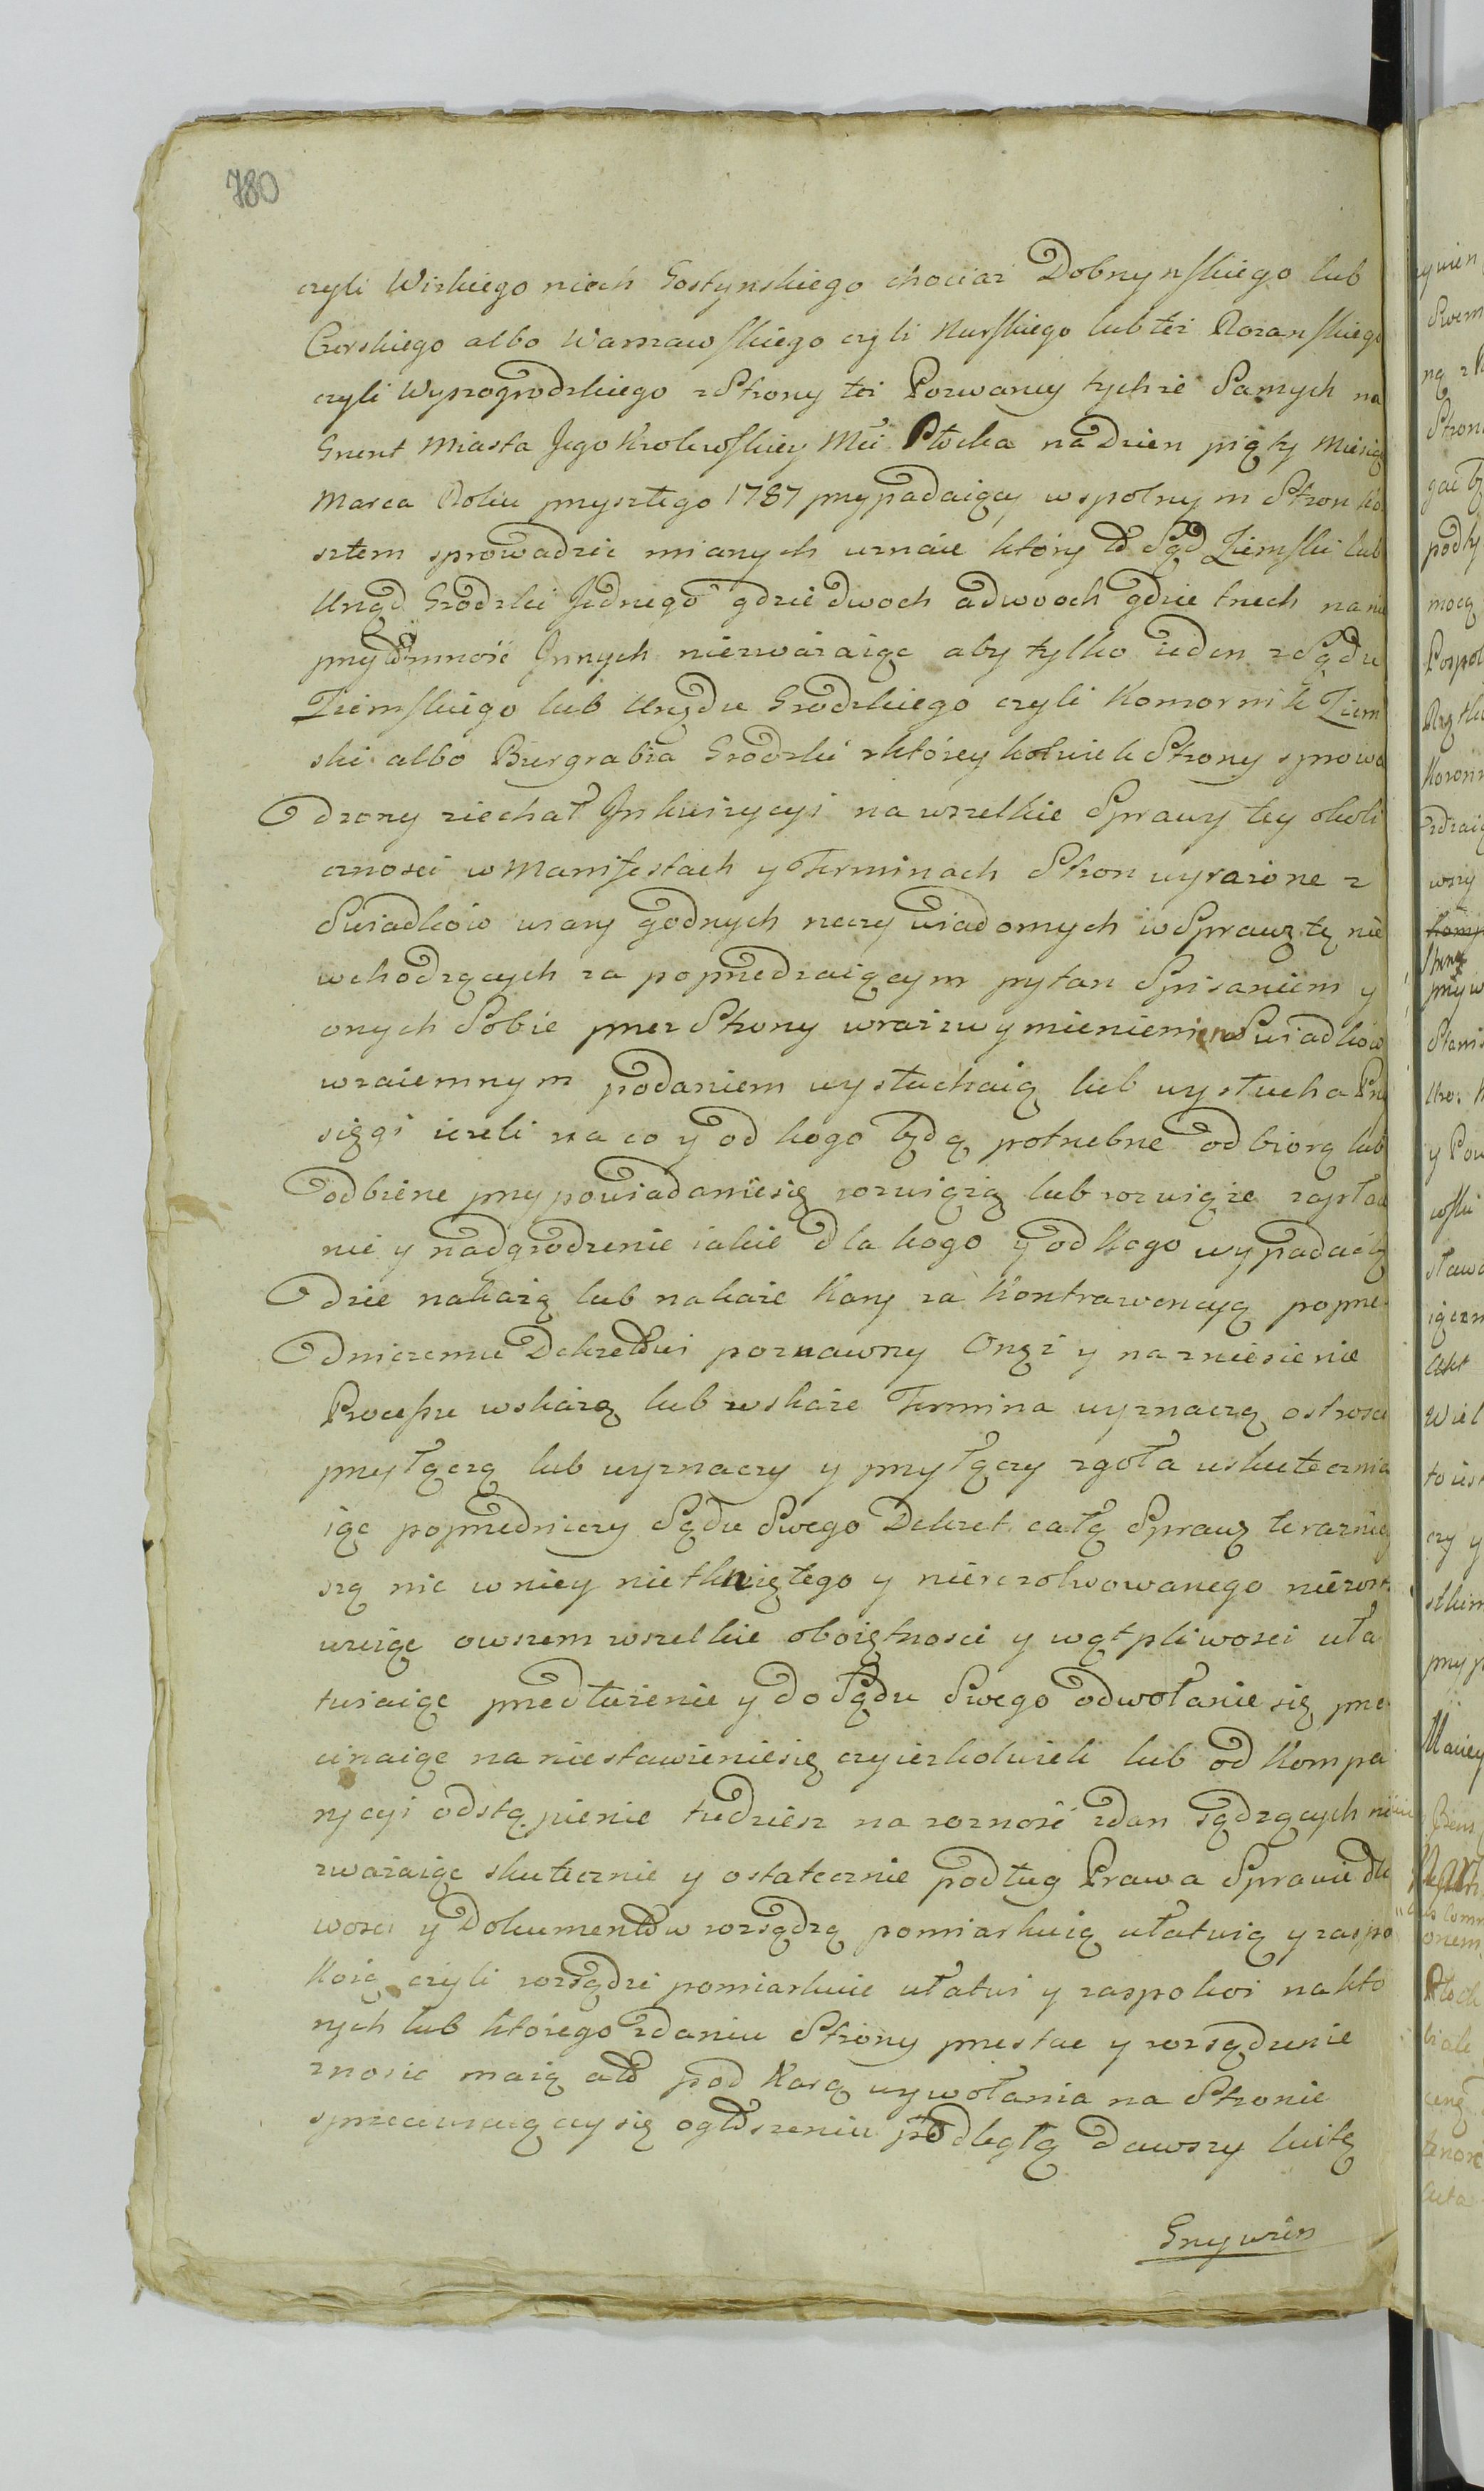 780
czyli Wizkiego niech Gostynskiego chociaz Dobrzynskiego lub
Czerskiego albo Warszawskiego czyli Nurskiego lub też Rozanskiego
czyli Wyszogrodzkiego z Strony też Pozwaney tychże Samych na
Grunt Miasta Jego Krolewskiey Mći Płocka na Dzien piąty Miesią
Marca Roku przyszłego 1787 przypadaiący wspolnym Stron ko
sztem sprowadzić mianych uznaie który to Sąd Ziemski lub
Urząd Grodzki Jednego gdzie dwoch a dwoch gdzie trzech na nie
przytomność Innych niezważaiąc aby tylko ieden z Sądu
Ziemskiego lub Urzędu Grodzkiego czyli Komornik Ziem
ski albo Burgrabia Grodzki z którey kolwiek Strony sprowa
dzony ziechał Inkwizycyi na wszelkie Sprawy tey okoli
cznosci w Manifestach y Terminach Stron wyrażone z
Swiadków wiary godnych rzeczy wiadomych w Sprawę tę nie
wchodzących za poprzedzaiącym pytan Spisaniem y
onych Sobie przez Strony wraz z wymienieniem Swiadków
wzaiemnym podaniem wysłuchaią lub wysłucha Przy
sięgi ieżeli na co y od kogo będą potrzebne odbiorą lub
odbierze przypowiadanie się rozwiążą lub rozwiąże zapłace
nie y nadgrodzenie iakie dla kogo y od kogo wypadać bę
dzie nakażą lub nakaże Kary za Kontrawencyą poprze
dniczemu Dekretowi poznawszy Onęż y na zniesienie
Processu wskażą lub wskaże Termina wyznaczą ostrosci
przyłączą lub wyznaczy y przyłączy zgoła uskutecznia
iąc poprzedniczy Sądu Swego Dekret całą Sprawę terazniey
szą nic w niey nietkniętego y nierezolwowanego niezosta
wuiąc owszem wszelkie oboiętnosci y wątpliwosci uła
twiaiąc przedłużenie y do Sądu Swego odwołanie się prze
cinaiąc na niestawienie się czyieżkolwiek lub od Kompa
rycyi odstąpienie tudziesz na rozność zdan sądzących nie
zważaiąc skutecznie y ostatecznie podług Prawa Sprawiedli
wosci y Dokumentow rozsądzą pomiarkuią ułatwią y zaspo
koią czyli rozsądzi pomiarkuie ułatwi y zaspokoi na któ
rych lub którego zdaniu Strony przestać y rozsądzenie
znosić maią a to pod Karą wywołania na Stronie
sprzeciwiaiącey się ogłoszeniu podległą dawszy winę
Grzywien